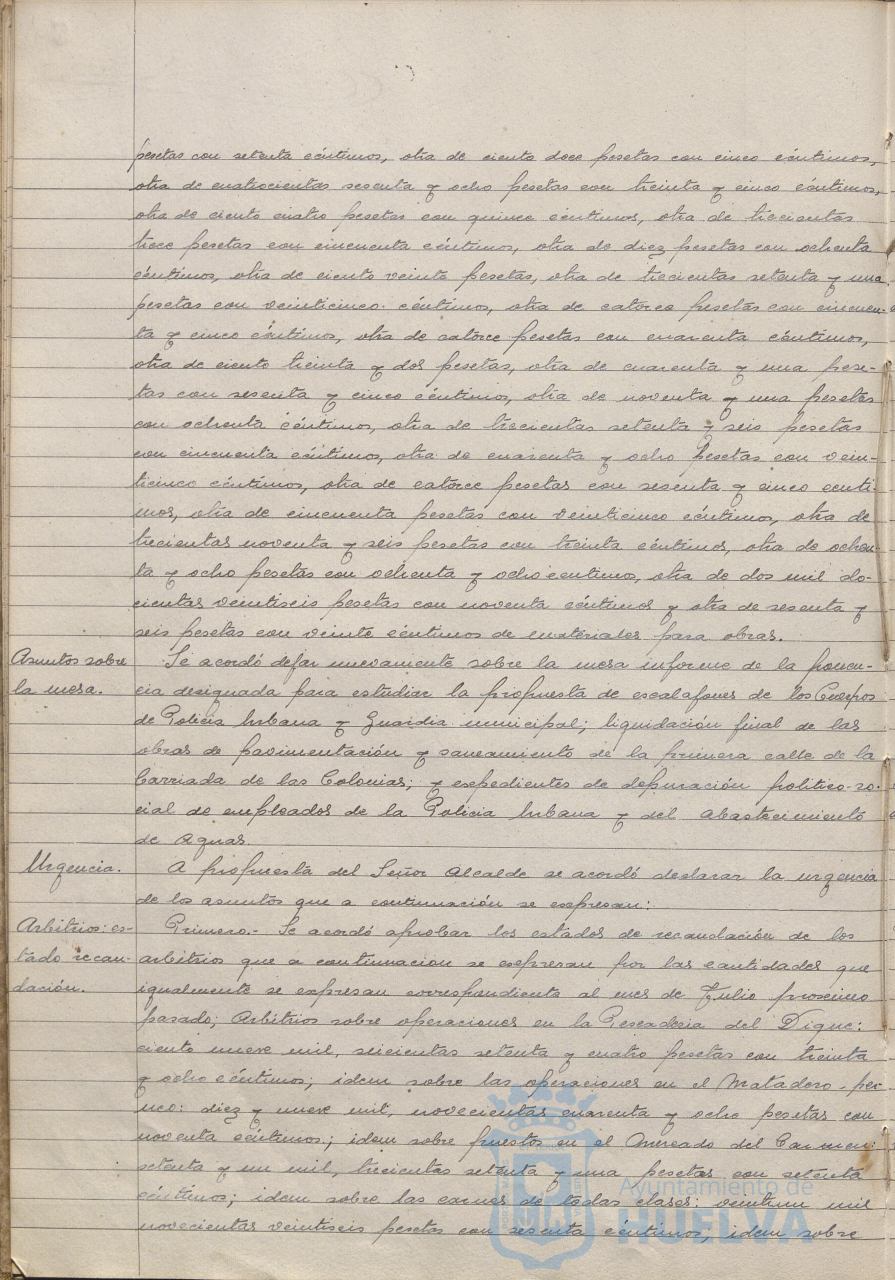 pesetas con setenta céntimos, otra de ciento doce pesetas con cinco céntimos,
otra de cuatrocientas sesenta y ocho pesetas con treinta y cinco céntimos,
otra de ciento cuatro pesetas con quince céntimos, otra de trecientas
trece pesetas con cincuenta céntimos, otra de diez pesetas con ochenta
céntimos, otra de ciento veinte pesetas, otra de trecientas setenta y una
pesetas con veinticinco céntimos, otra de catorce pesetas con cincuen-
ta y cinco céntimos, otra de catorce pesetas con cuarenta céntimos,
otra de ciento treinta y dos pesetas, otra de cuarenta y una pese-
tas con sesenta y cinco céntimos, otra de noventa y una pesetas
con ochenta céntimos, otra de trecientas setenta y seis pesetas
con cincuenta céntimos, otra de cuarenta y ocho pesetas con vein-
ticinco céntimos, otra de catorce pesetas con sesenta y cinco centi-
mos, otra de cincuenta pesetas con veinticinco céntimos, otra de
trecientas noventa y seis pesetas con treinta céntimos, otra de ochen-
ta y ocho pesetas con ochenta y ocho centimos, otra de dos mil do-
cientas veintiseis pesetas con noventa céntimos y otra de sesenta y
seis pesetas con veinte céntimos de materiales para obras.
Asuntos sobre
la mesa.
Se acordó dejar nuevamente sobre la mesa informe de la ponen-
cia designada para estudiar la propuesta de escalafones de los Cuerpos
de Policia Urbana y Guardia municipal; liquidación final de las
obras de pavimentación y saneamiento de la primera calle de la
barriada de las Colonias; y espedientes de depuración politico-so-
cial de empleados de la Policia Urbana y del Abastecimiento
de Aguas.
Urgencia.
A propuesta del Señor Alcalde se acordó declarar la urgencia
de los asuntos que a continuación se espresan:
Arbitrios: es-
tado recau-
dación.
Primero.- Se acordó aprobar los estados de recaudación de los
arbitrios que a continuacion se espresan por las cantidades que
igualmente se expresan correspondiente al mes de Julio proximo
pasado; Arbitrios sobre operaciones en la Pescaderia del Dique:
ciento nueve mil, seicientas setenta y cuatro pesetas con treinta
y ocho céntimos; idem sobre las operaciones en el Matadero-per-
nco: diez y nueve mil, novecientas cuarenta y ocho pesetas con
noventa céntimos; idem sobre puestos en el Mercado del Carmen:
setenta y un mil, trecientas setenta y una pesetas con setenta
céntimos; idem sobre las carnes de todas clases: veintiun mil
novecientas veintiseis pesetas con sesenta céntimos; idem sobre
Ayuntamiento de
HUELVA